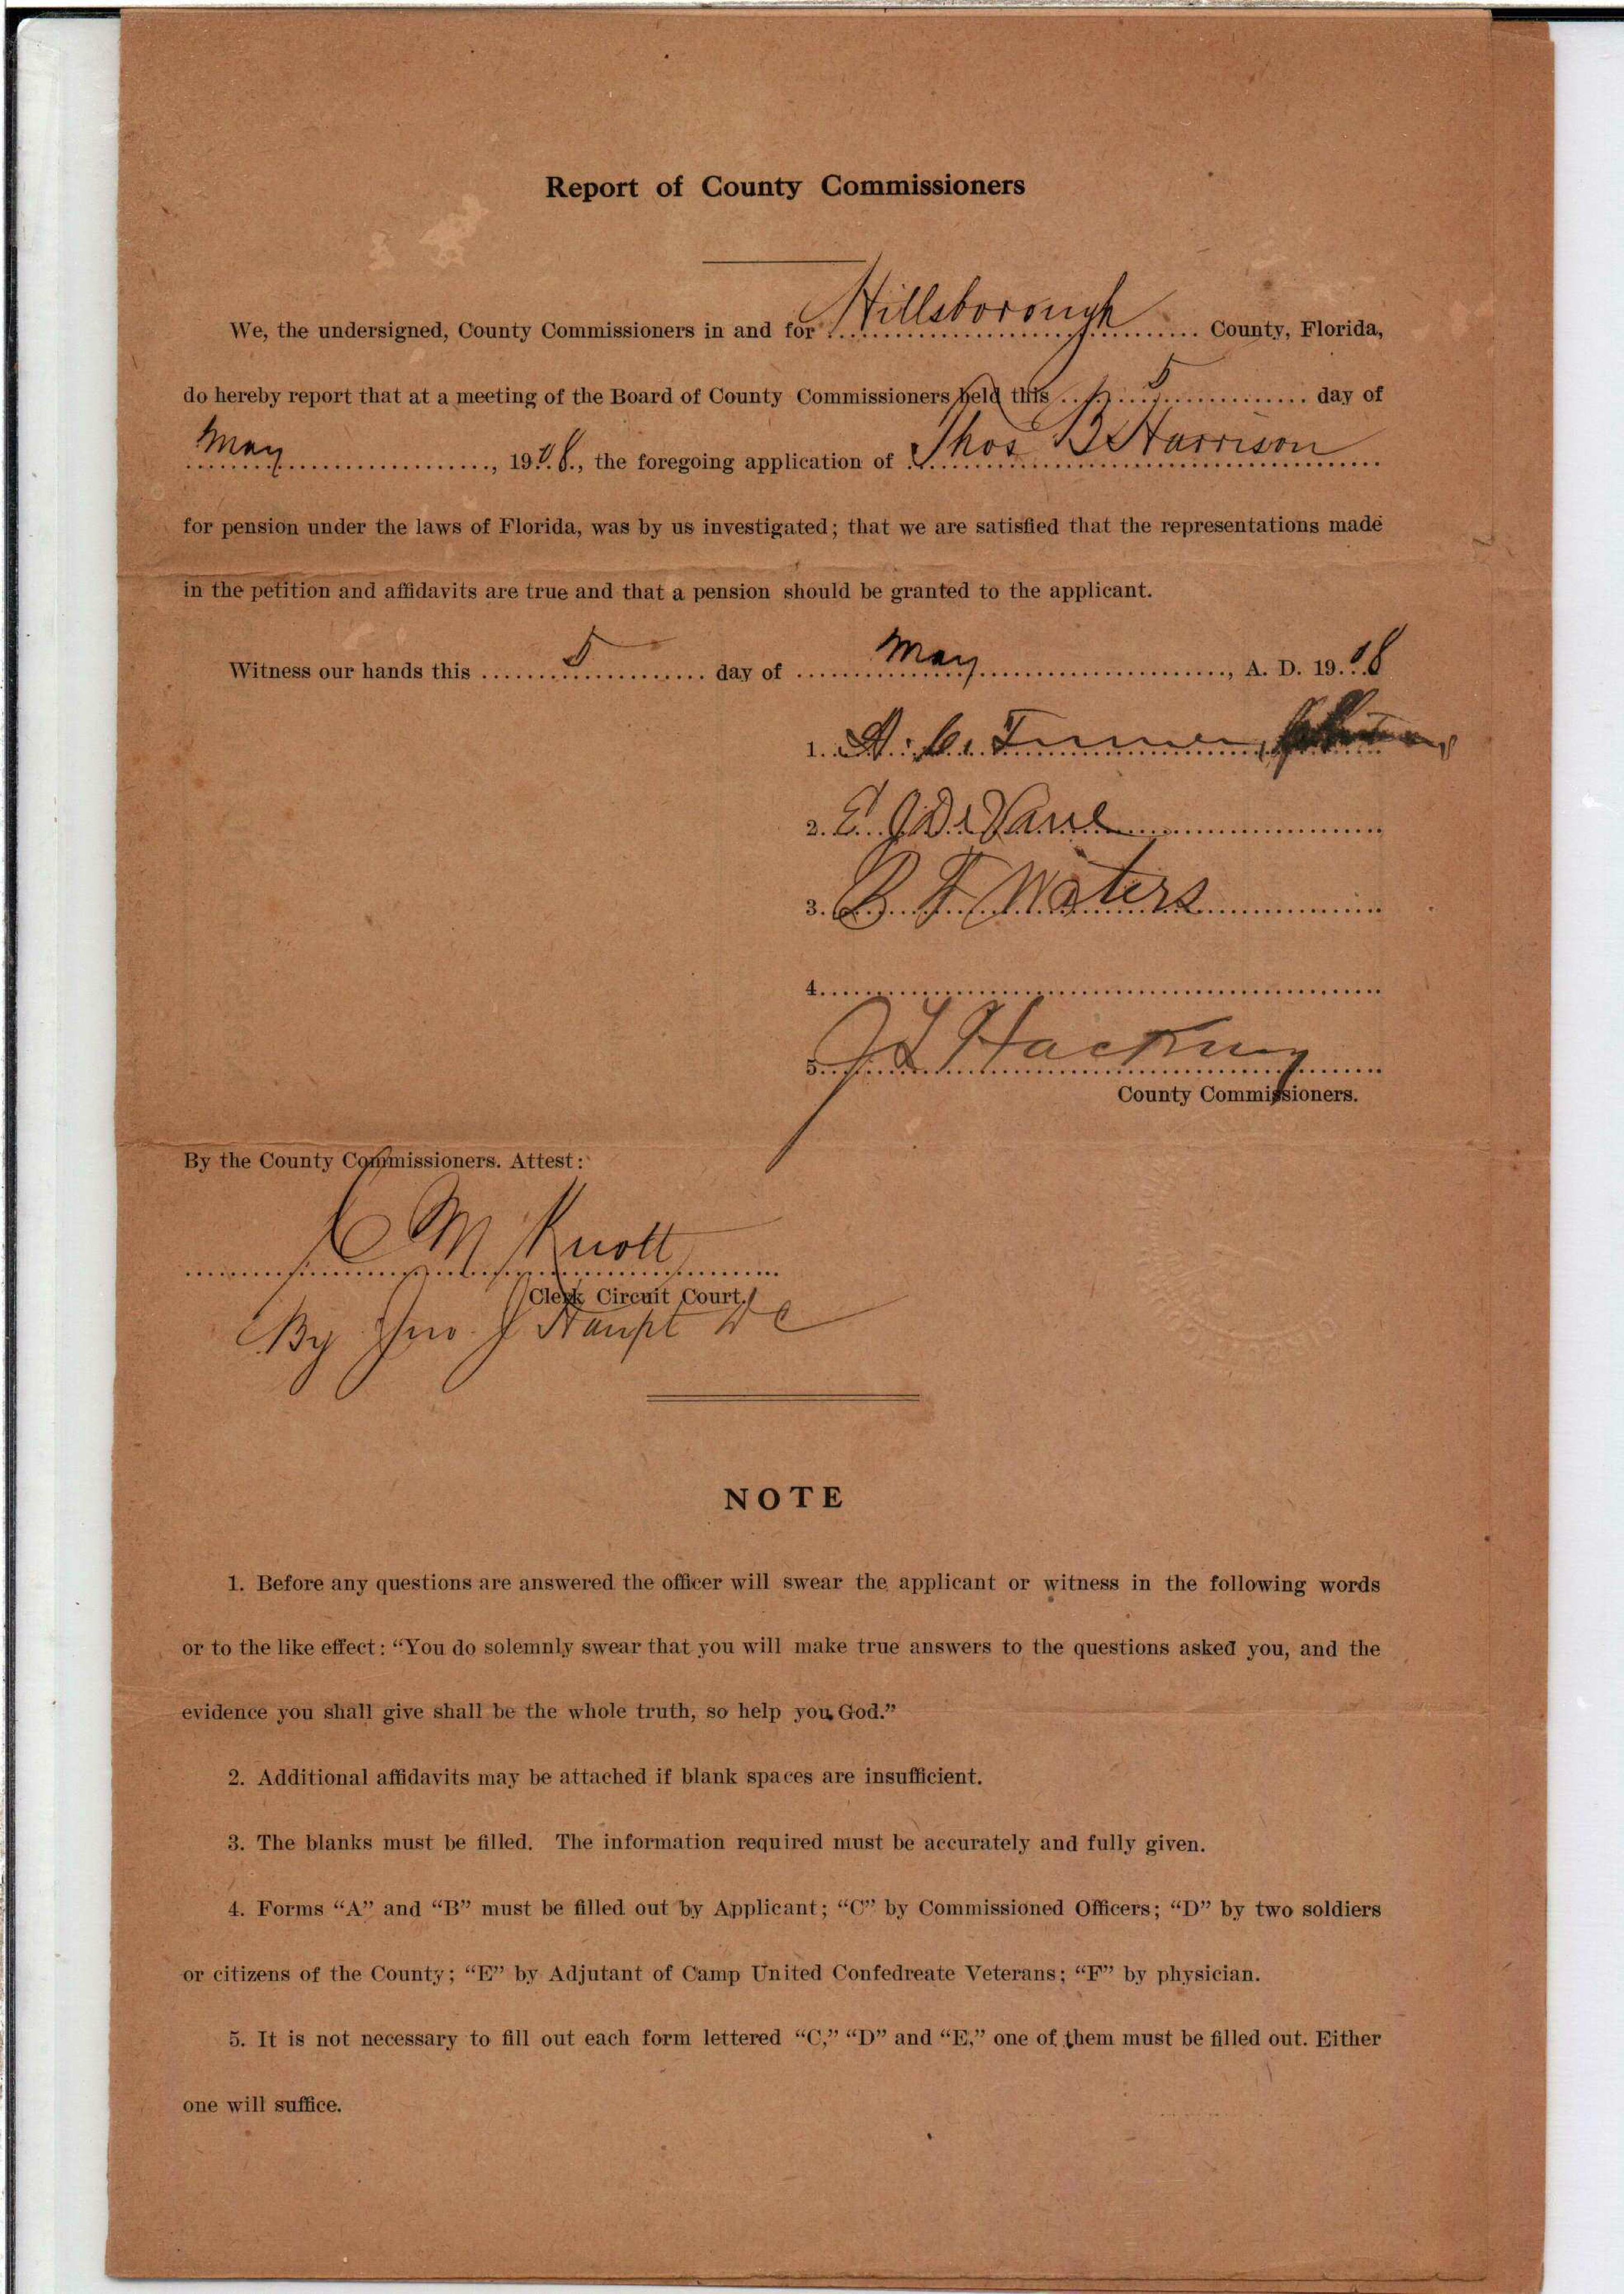 Report of County Commissioners
We, the undersigned, County Commissioners in and for Hillsborough County, Florida,
do hereby report that at a meeting of the Board of County Commissioners held this 5 day of
May, 1908., the foregoing application of Thos B Harrison
for pension under the laws of Florida, was by us investigated; that we are satisfied that the representations made
in the petition and affidavits are true and that a pension should be granted to the applicant.
Witness our hands this 5 day of May, A. D. 1908
1.
2. E. J. DeVane
3. B. F. Waters
4.
5. Hackney
County Commissioners.
By the County Commissioners. Attest:
C M Knott
Clerk Circuit Court.
By Jno. J Haupt D C
NOTE
1. Before any questions are answered the officer will swear the applicant or witness in the following words
or to the like effect: “You do solemnly swear that you will make true answers to the questions asked you, and the
evidence you shall give shall be the whole truth, so help you God.”
2. Additional affidavits may be attached if blank spaces are insufficient.
3. The blanks must be filled. The information required must be accurately and fully given.
4. Forms “A” and “B” must be filled out by Applicant; “C” by Commissioned Officers; “D” by two soldiers
or citizens of the County; “E” by Adjutant of Camp United Confedreate Veterans; “F” by physician.
5. It is not necessary to fill out each form lettered “C,” “D” and “E,” one of them must be filled out. Either
one will suffice.